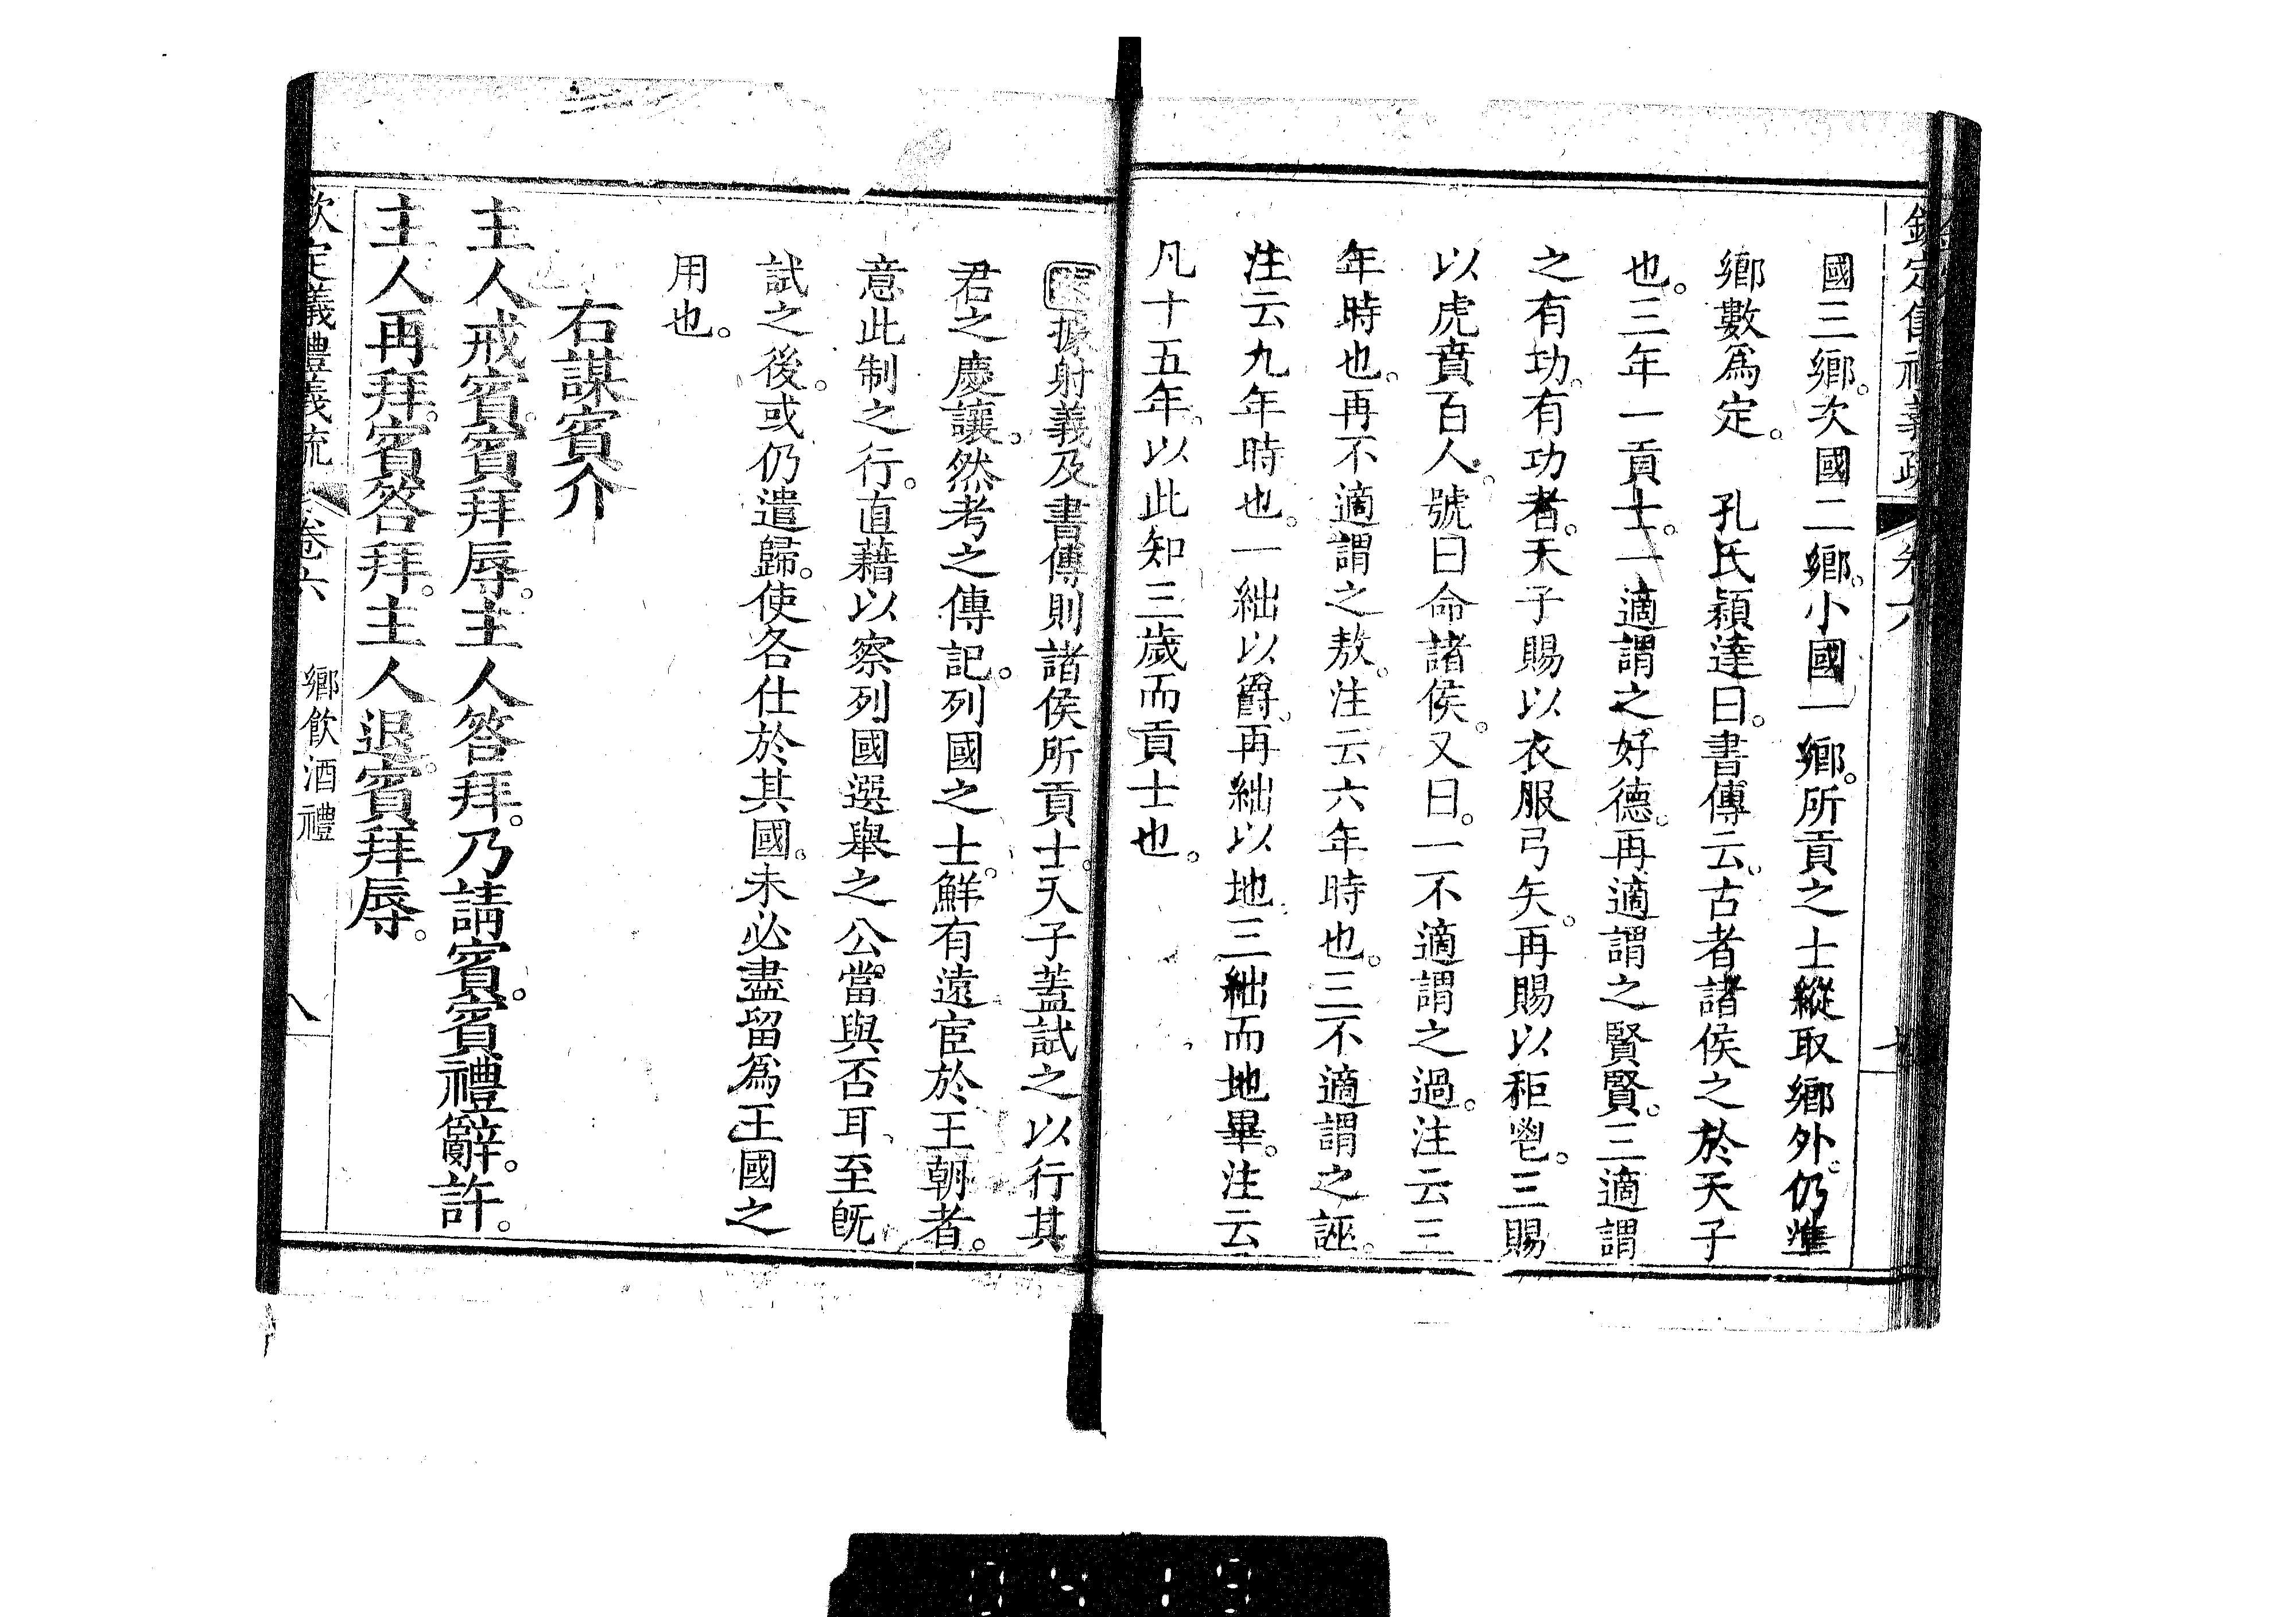 欽定儀禮義疏 卷六 七
國三鄉。次國二鄉。小國一鄉。所貢之士縱取鄉外。仍準
鄉數爲定。 孔氏穎達曰。書傳云。古者諸侯之於天子
也。三年一貢士。一適謂之好德。再適謂之賢賢。三適謂
之有功。有功者。天子賜以衣服弓矢。再賜以秬鬯。三賜
以虎賁百人。號曰命諸侯。又曰。一不適謂之過。注云三
年時也。再不適謂之敖。注云六年時也。三不適謂之誣。
注云九年時也。一絀以爵。再絀以地。三絀而地畢。注云
凡十五年。以此知三歲而貢士也。
據射義及書傳則諸侯所貢士。天子蓋試之以行其
君之慶讓。然考之傳記。列國之士。鮮有遠宦於王朝者。
意此制之行。直藉以察列國選舉之公當與否耳。至旣
試之後。或仍遣歸。使各仕於其國。未必盡留爲王國之
用也。
右謀賓介
主人戒賓。賓拜辱。主人答拜。乃請賓。賓禮辭。許。
主人再拜。賓答拜。主人退。賓拜辱。
欽定儀禮義疏 卷六 鄉飲酒禮 八